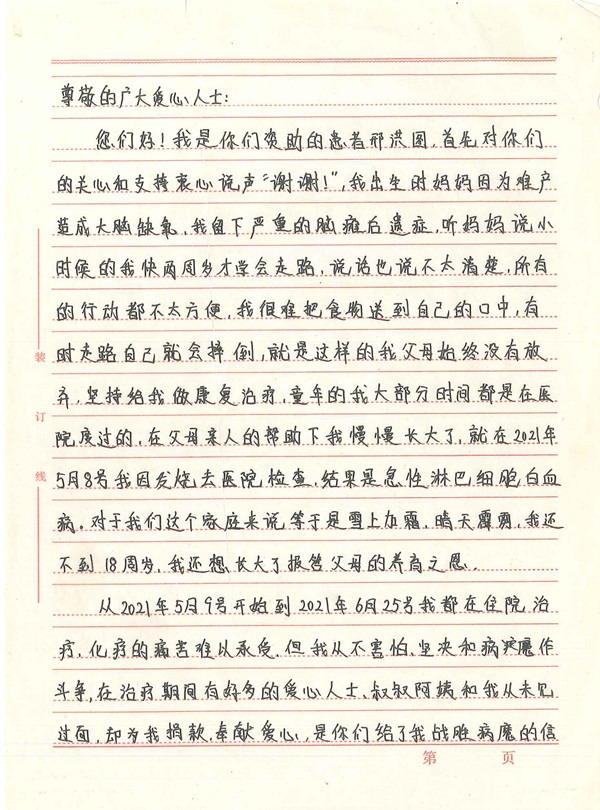 尊敬的广大爱心人士：
您们好！我是你们资助的患者邢洪图，首先对你们
的关心和支持衷心说声“谢谢！”，我出生时妈妈因为难产
造成大脑缺氧，我留下严重的脑瘫后遗症，听妈妈说小
时候的我快两周岁才学会走路，说话也说不太清楚，所有
的行动都不太方便，我很难把食物送到自己的口中，有
时走路自己就会摔倒，就是这样的我父母始终没有放
弃，坚持给我做康复治疗，童年的我大部分时间都是在医
院度过的，在父母亲人的帮助下我慢慢长大了，就在2021年
5月8号我因发烧去医院检查，结果是急性淋巴细胞白血
病，对于我们这个家庭来说等于是雪上加霜，晴天霹雳，我还
不到18周岁，我还想长大了报答父母的养育之恩。
从2021年5月9号开始到2021年6月25号我都在住院治
疗，化疗的痛苦难以承受，但我从不害怕，坚决和病疾魔作
斗争，在治疗期间有好多的爱心人士、叔叔阿姨和我从未见
过面，却为我捐款，奉献爱心，是你们给了我战胜病魔的信
装
订
线
第 页